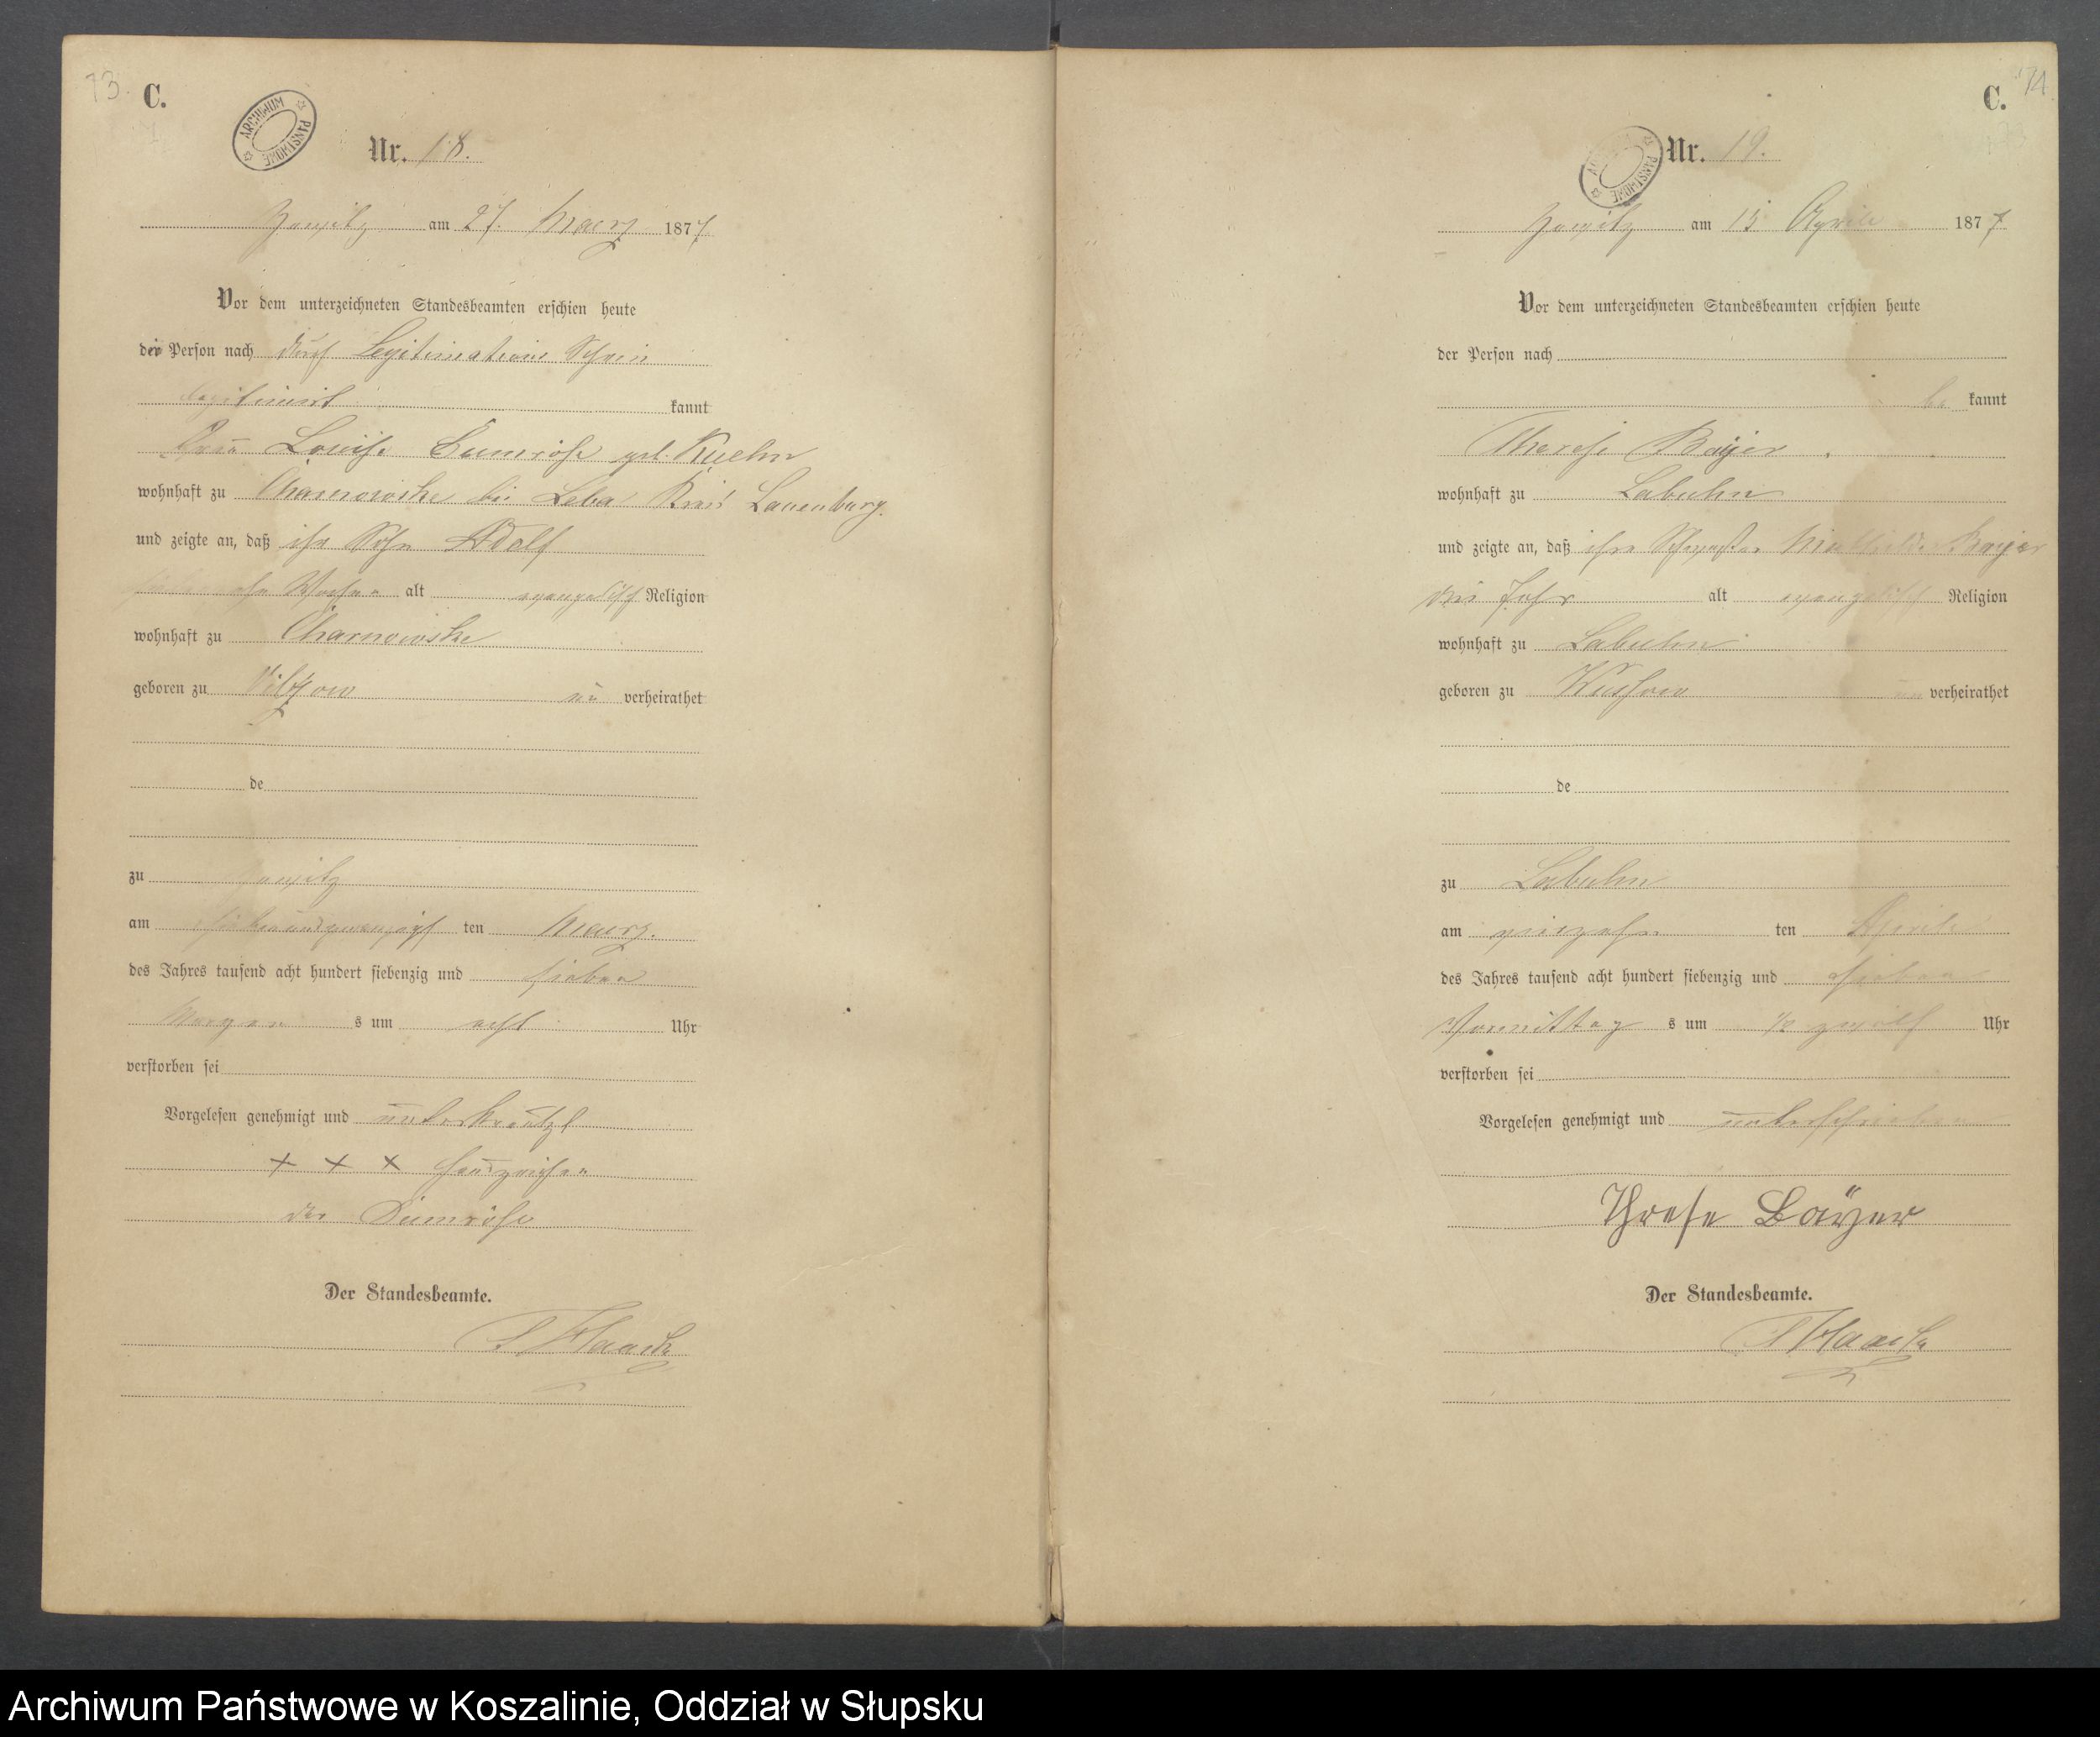 73.
C.
ARCHIWUM PAŃSTWOWE
Nr. 18.
Zewitz am 27. Maerz 1877
Vor dem unterzeichneten Standesbeamten erschien heute
die Person nach durch Legitimations Schein
legitimirt kannt
Frau Louise Dumröse geb. Kuehn
wohnhaft zu Charnowske bei Leba Kreis Lauenburg.
und zeigte an, daß ihr Sohn Adolf
Wochen alt evangelisch Religion
wohnhaft zu Charnowske
geboren zu Vilzow un verheirathet
de
zu Zewitz
am siebenundzwanzigsten Maerz.
des Jahres tausend acht hundert siebenzig und sieben
Morgens um acht Uhr
verstorben sei
Vorgelesen genehmigt und unterkreutzt
+ + + Handzeichen
der Dumröse
Der Standesbeamte.
Haack
74
C.
ARCHIWUM PAŃSTWOWE
Nr. 19.
Zewitz am 15 April 1877
Vor dem unterzeichneten Standesbeamten erschien heute
der Person nach
bekannt
Therese Bayer
wohnhaft zu Labuhn
und zeigte an, daß ihre Schwester Mathilde Bayer
drei Jahr alt evangelisch Religion
wohnhaft zu Labuhn
geboren zu Wussow un verheirathet
de
zu Labuhn
am vierzehnten April
des Jahres tausend acht hundert siebenzig und sieben
Vormittags um 1/2 zwölf Uhr
verstorben sei
Vorgelesen genehmigt und unterschrieben
Threse Bayer
Der Standesbeamte.
Haack
Archiwum Państwowe w Koszalinie, Oddział w Słupsku